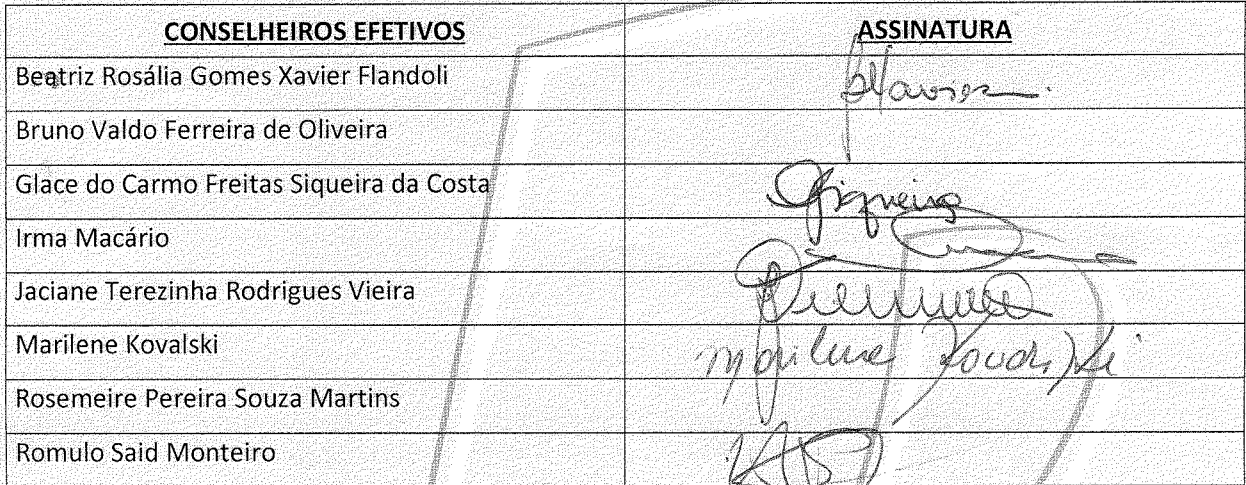 CONSELHEIROS EFETIVOS ASSINATURA
Beatriz Rosália Gomes Xavier Flandoli
Bruno Valdo Ferreira de Oliveira
Glace do Carmo Freitas Siqueira da Costa Siqueira
Irma Macário
Jaciane Terezinha Rodrigues Vieira
Marilene Kovalski Marilene Kovalski
Rosemeire Pereira Souza Martins
Romulo Said Monteiro